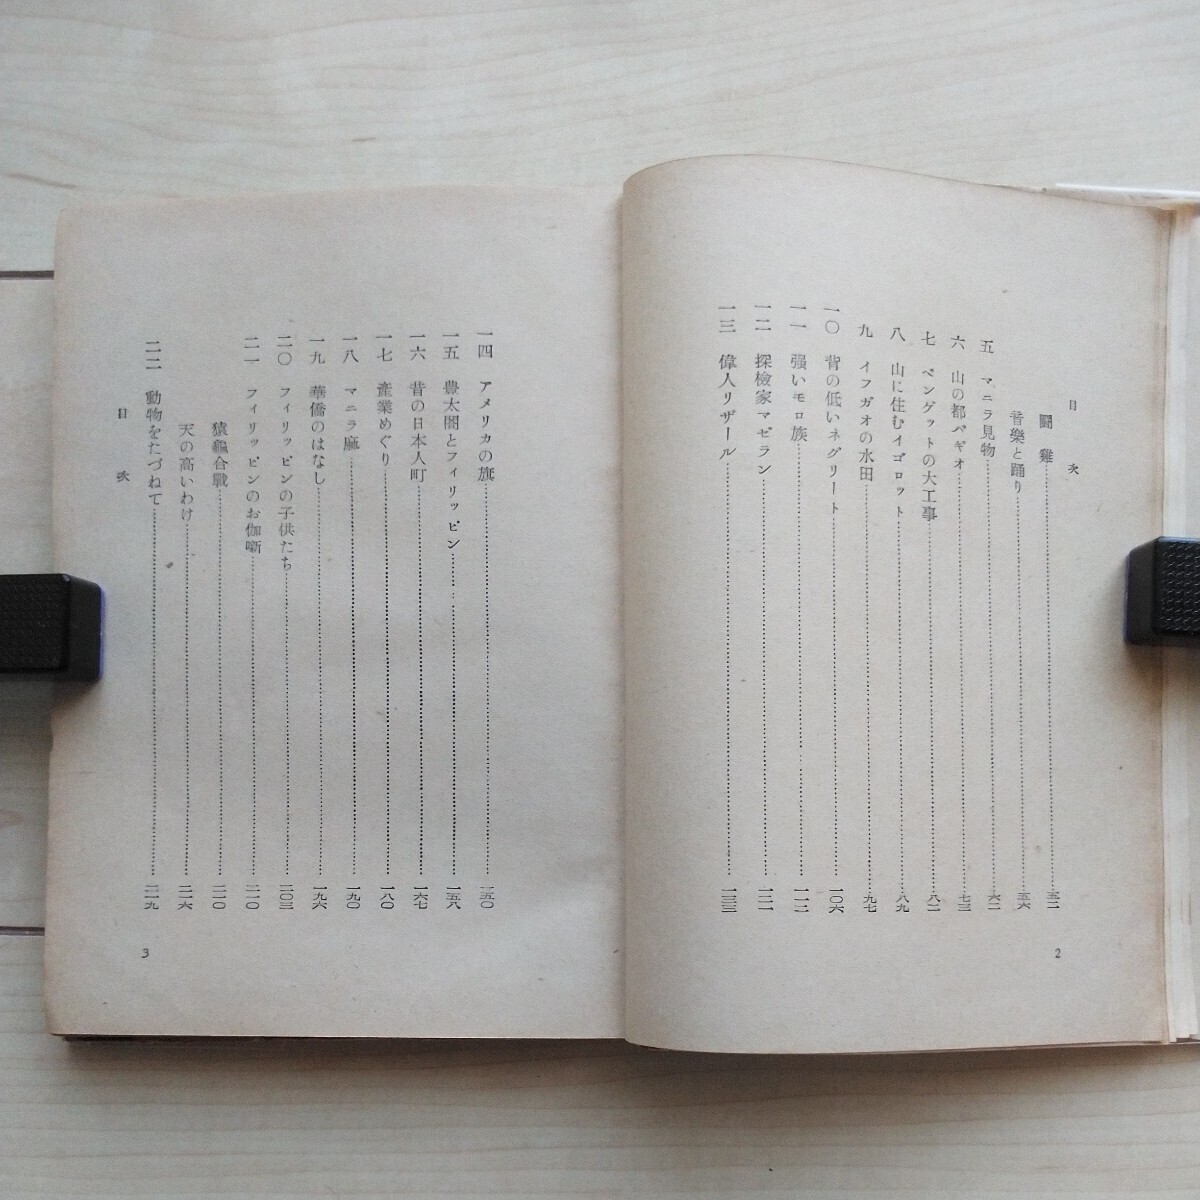 目次
闘雞……五二
音樂と踊り……五六
五 マニラ見物……六二
六 山の都バギオ……七三
七 ベンゲットの大工事……八二
八 山に住むイゴロット……八九
九 イフガオの水田……九七
一〇 背の低いネグリート……一〇六
一一 强いモロ族……一一二
一二 探檢家マゼラン……一二一
一三 偉人リザール……一三三
2
一四 アメリカの旗……一五〇
一五 豊太閤とフィリッピン……一五八
一六 昔の日本人町……一六七
一七 產業めぐり……一八〇
一八 マニラ麻……一九〇
一九 華僑のはなし……一九六
二〇 フィリッピンの子供たち……二〇三
二一 フィリッピンのお伽噺……二一〇
猿龜合戰……二一〇
天の高いわけ……二一六
二二 動物をたづねて……二一九
目次
3